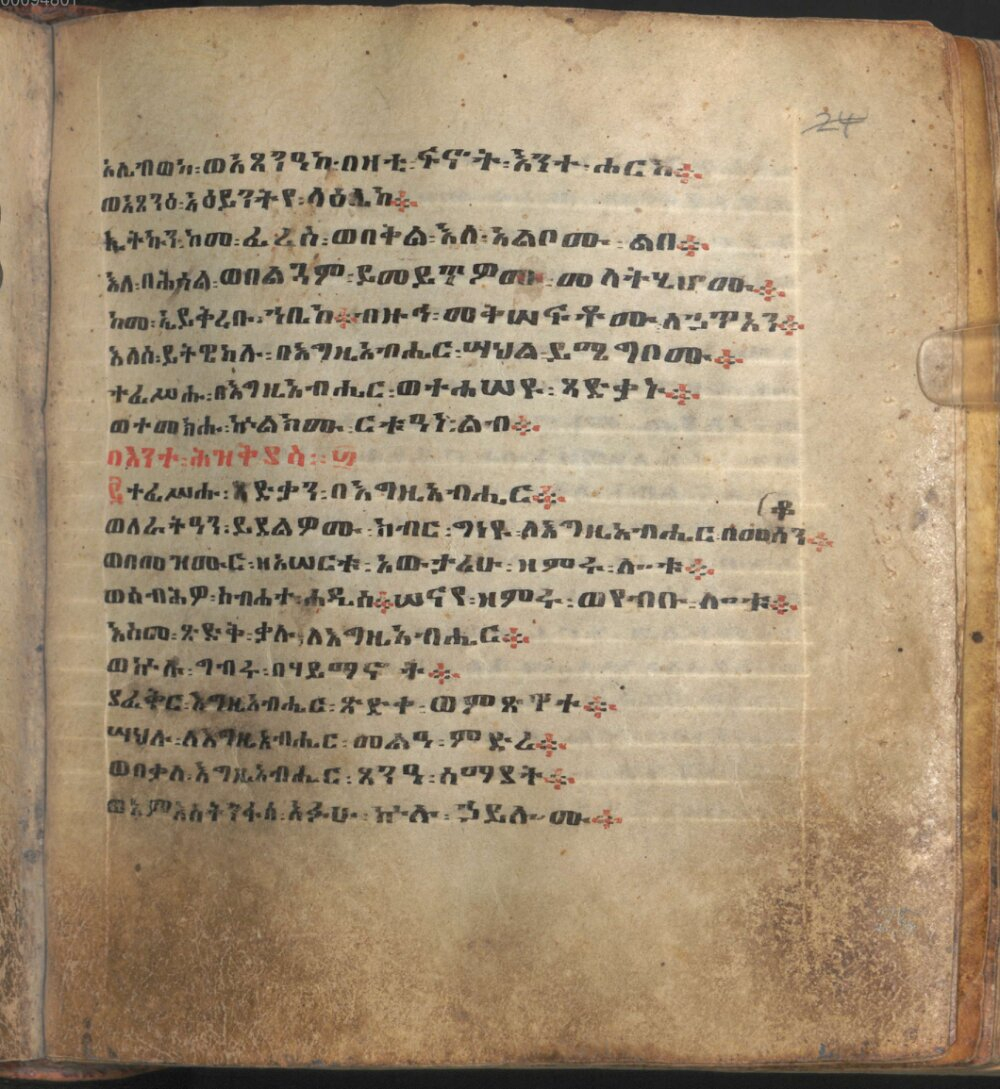 24
አሌብወካ፡ወአጸንዓከ፡በዛቲ፡ፍኖት፡እንተ፡ሖርከ፨
ወአጸንዕ፡አዕይንትየ፡ላዕሌከ፨
ኢትኩን፡ከመ፡ፈረስ፡ወበቅል፡እለ፡አልቦሙ፡ልበ፨
እለ፡በሕሳል፡ወበልጓም፡ይመይጥዎሙ፡መላትሂሆሙ፨
ከመ፡ኢይቅረቡ፡ኀቤከ፨ብዙኅ፡መቅሠፍቶሙ፡ለኃጥአን፨
እለሰ፡ይትዌከሉ፡በእግዚአብሔር፡ሣህል፡ይሜግቦሙ፨
ተፈሥሑ፡በእግዚአብሔር፡ወተሐሠዩ፡ጻድቃኑ፨
ወተመክሑ፡ኵልክሙ፡ርቱዓነ፡ልብ፨
በእንተ፡ሕዝቅያስ፡፡፴
፪ተፈሥሑ፡ጻድቃን፡በእግዚአብሔር፨
(ቶ
ወለራትዓን፡ይደልዎሙ፡ክብር፡ግነዩ፡ለእግዚአብሔር፡በመሰንቆ፨
ወበመዝሙር፡ዘአሠርቱ፡አውታሪሁ፡ዘምሩ፡ሎቱ፨
ወሰብሕዎ፡ስብሐተ፡ሐዲሰ፨ሠናየ፡ዘምሩ፡ወየብቡ፡ሎቱ፨
እስመ፡ጽድቅ፡ቃሉ፡ለእግዚአብሔር፨
ወኵሉ፡ግብሩ፡በሃይማኖት፨
ያፈቅር፡እግዚአብሔር፡ጽድቀ፡ወምጽዋተ፨
ሣህሉ፡ለእግዚአብሔር፡መልዓ፡ምድረ፨
ወበቃለ፡እግዚአብሔር፡ጸንዓ፡ሰማያት፨
ወእምእስትንፋሰ፡አፉሁ፡ኵሉ፡ኃይሎሙ፨